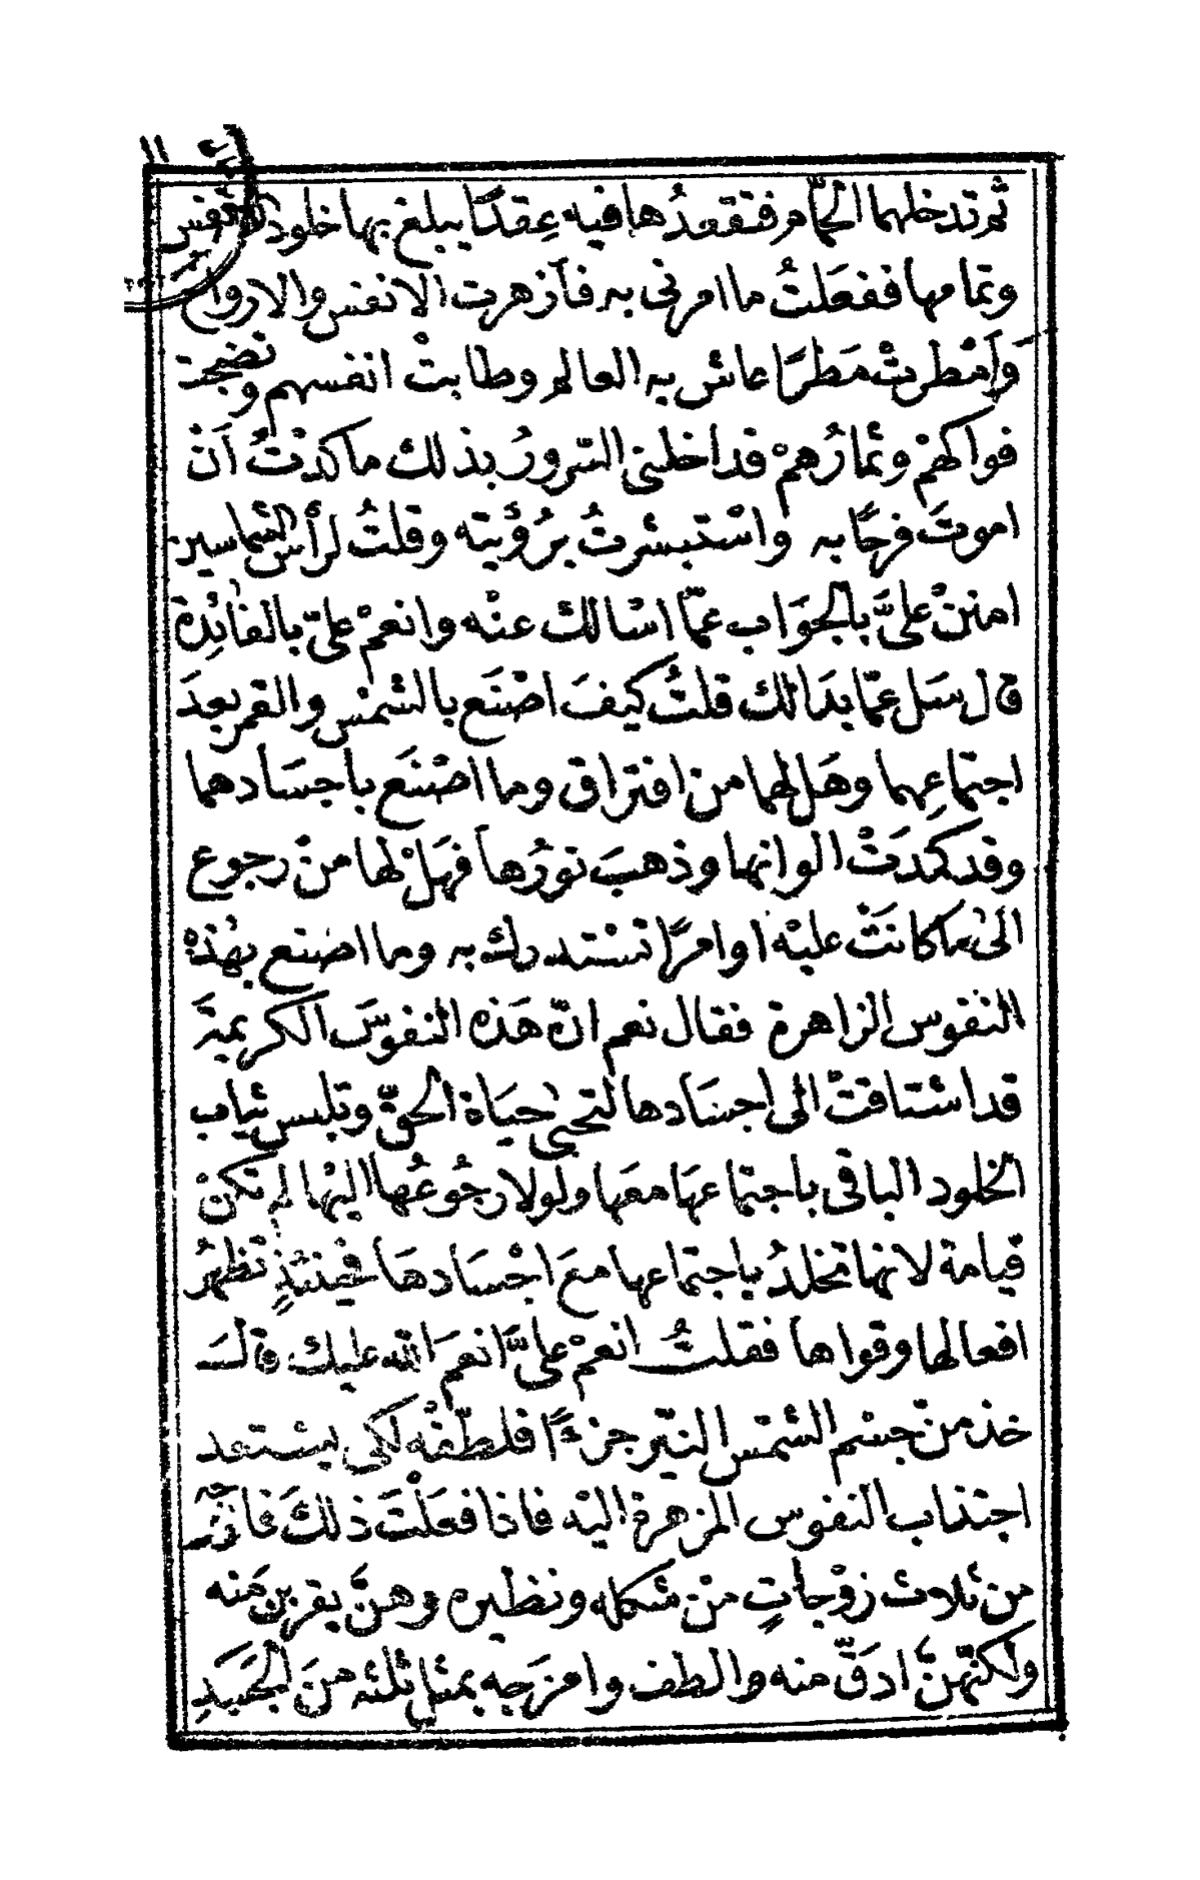 ١١
ثم تدخلهما الحمّام فتقعدُها فيه عِقدًا يبلغ بها خلود النفس
وتمامها ففعَلتُ ما امرني به فأزهرت الانفس والارواح
وأمْطرتْ مَطرًا عاش به العالم وطابتْ انفسهم ونضجت
فواكهمْ وثمارُهمْ قد اخلنى السّرورُ بذلك ما كدْتُ اَنْ
اموتَ فرحًا به واسْتبشرتُ برُؤيته وقلتُ لرأس الشماسين
امننْ علىَّ بالجوَاب عمّا اسالك عنْه وانعمْ علىّ بالفائِدة
قال سَل عمّا بدَا لك قلتُ كيفَ اصْنَع بالشمْس والقمر بعدَ
اجتماعِهما وهَل لهما من افتراق وما اصْنَع باجسَادهما
وقد كمدَتْ الوانهما وذهبَ نورُها فهَلْ لها منْ رجوع
الى ما كانَتْ عليْه اوامرًا تسْتدرك به وما اصنع بهذه
النفوس الزاهرة فقال نعم انّ هَذه النفوسَ الكريمة
قد اشتاقتْ الى اجسَادها لتحيى حيَاة الحقّ وتلبس ثياب
الخلود الباقى باجتماعهَا معَها ولولا رجُوعُها اليْها لم تكنْ
قيامة لانها تخلدُ باجتماعها معَ اجْسَادهَا فحينئذٍ تظهرُ
افعالها وقواها فقلتُ انعمْ علىَّ انعمَ الله عليك قالـَ
خذ منْ جسْم الشمْس النيّر جزءًا فلطّفْه لكى يستعد
اجتذاب النفوس المزهرة اليْه فاذا فعَلْتَ ذلكَ فانه
من ثلاث زوْجاتٍ منْ شكله ونظيره وهنَّ يقربن منه
ولكنّهنّ ادَقّ منه والطف وامزَجه بمثل ثلثه منَ الجسَدِ